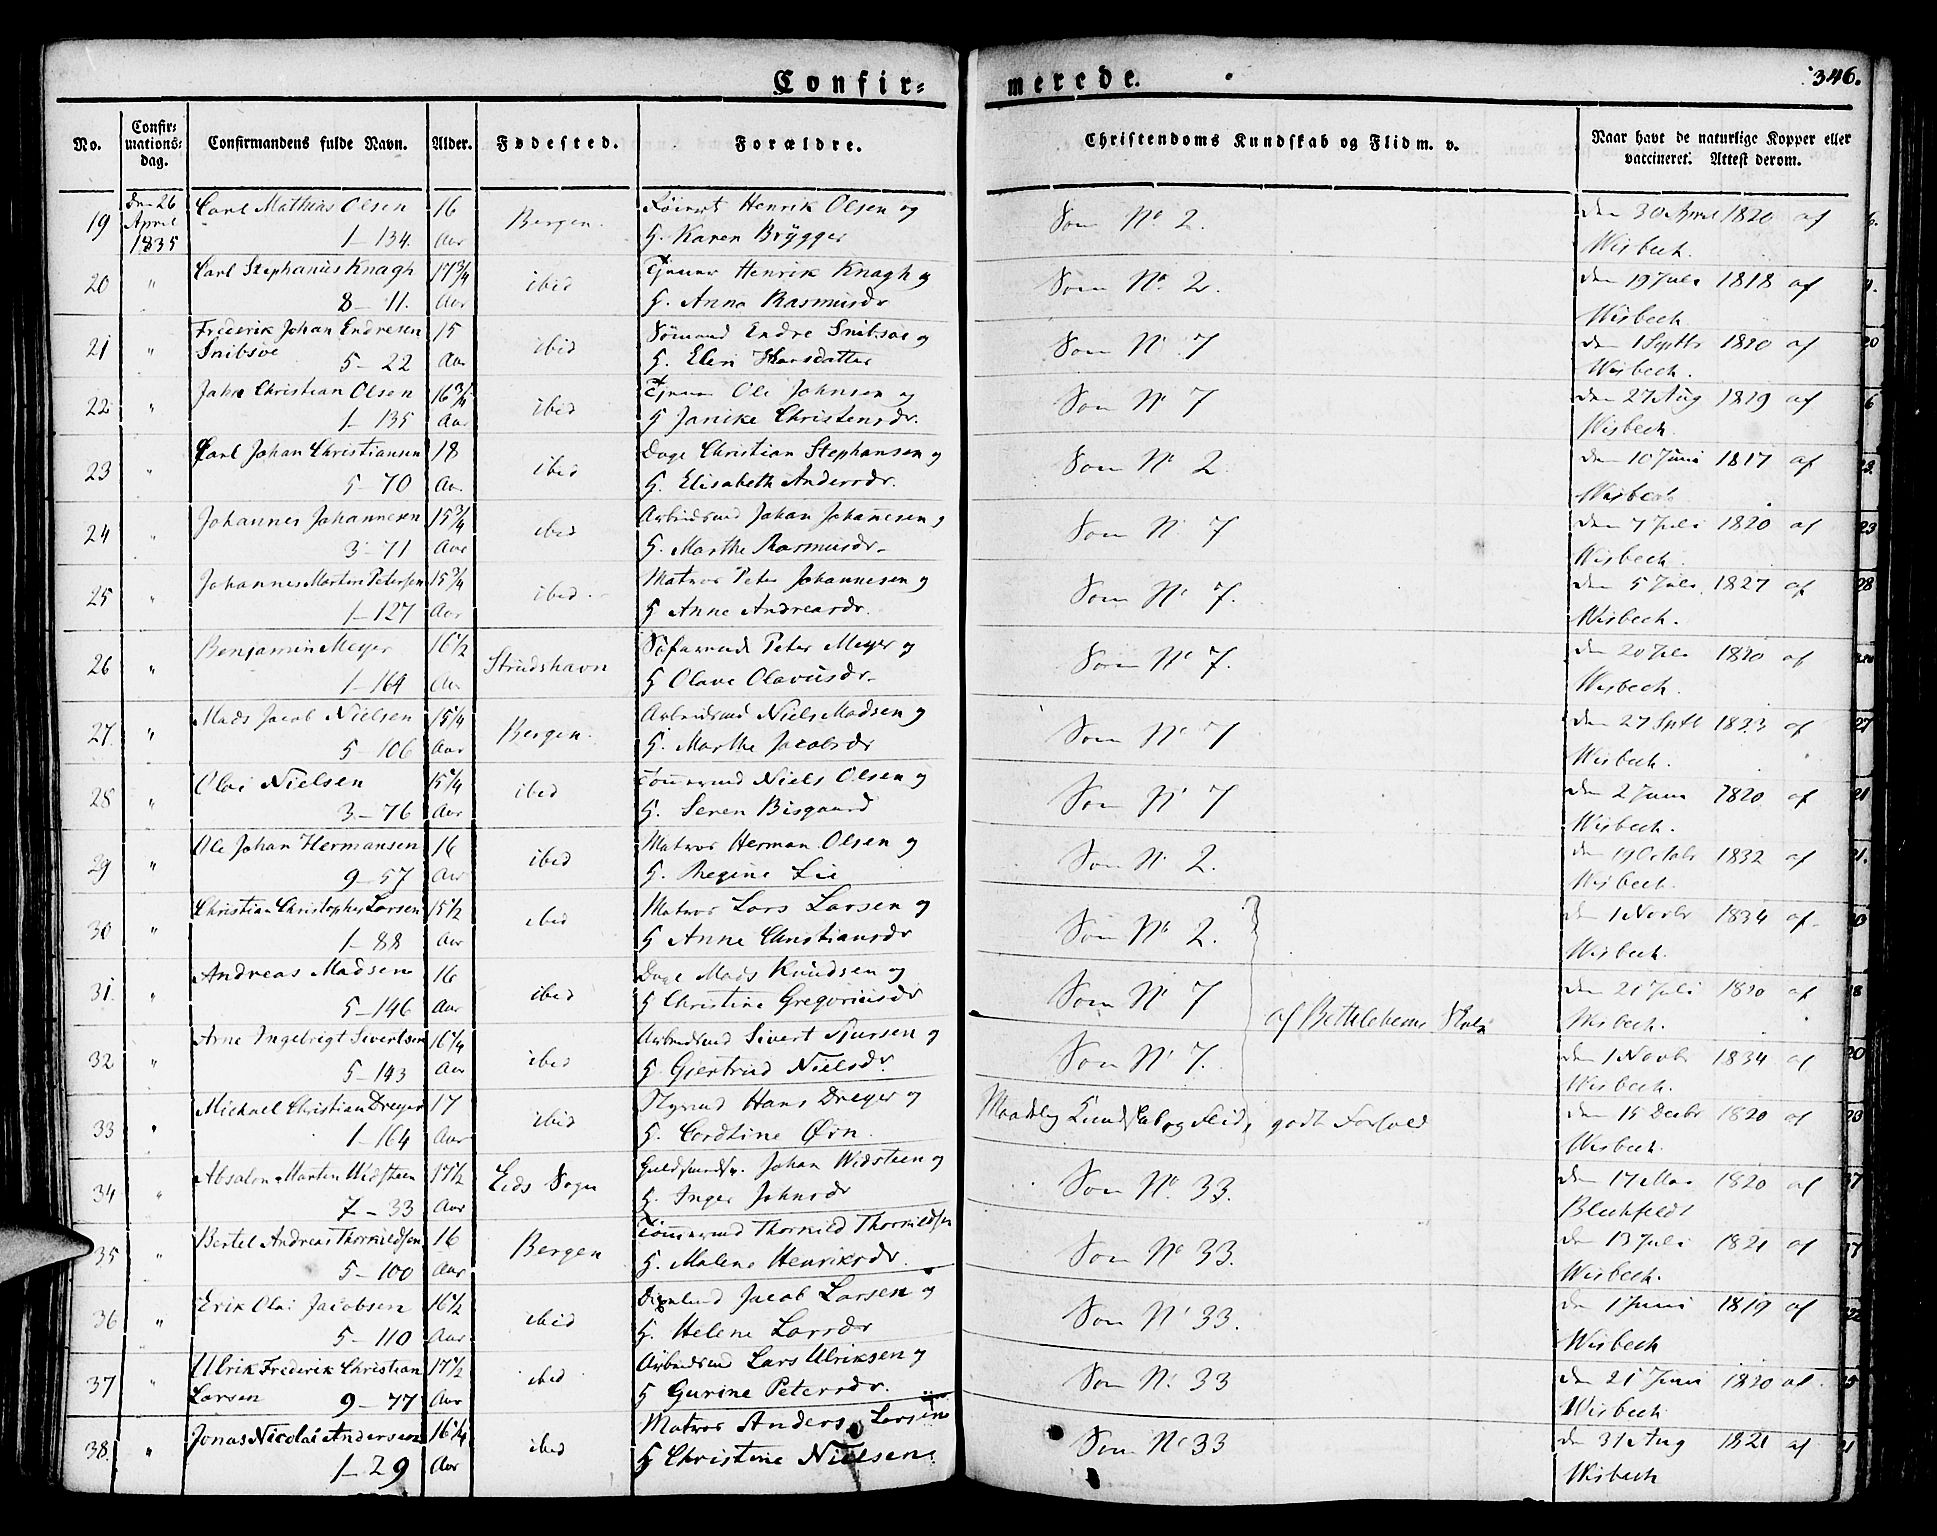 Confir=
merede.
346.
No.
Confir=
mations=
dag.
Confirmandens fulde Navn.
Alder.
Fødested.
Forældre.
Christendoms Kundskab og Flid m. v.
Naar havt de naturlige Kopper eller
vaccineret. Attest derom.
19 den 26 April 1835 Carl Mathias Olsen 16 Bergen. Henrik Olsen og Som No. 2. den 30 April 1820 af
1 - 134. Aar h. Karen Brygger Wisbech.
20 " Carl Stephanus Knagh 17 3/4 ibid Henrik Knagh og Som No. 2. den 19 Juli 1818 af
8 - 11. Aar h. Anna Rasmusdr Wisbech
21 " Frederik Johan Endresen 15 ibid Endre Snibsøe og Som No 7 den 1 Septb 1820 af
Snibsøe 5 - 22 Aar h. Elen Hansdatter Wisbech.
22 " Johan Christian Olsen 16 3/4 ibid Ole Johnsen og Som No 7 den 27 Aug 1819 af
1 - 135 Aar h Janike Christensdr. Wisbech.
23 " Carl Johan Christiansen 18 ibid Christian Stephansen og Som No 2. den 10 Juni 1817 af
5 - 70 Aar h. Elisabeth Andersdr. Wisbech
24 " Johannes Johannesen 15 3/4 ibid Arbeidsmd Johan Johannesen og Som No 7 den 7 Juli 1820 af
3 - 71 Aar h. Marthe Rasmusdr. Wisbech.
25 " Johannes Morten Petersen 15 3/4 ibid. Matros Peter Johannesen og Som No 7. den 5 Juli 1827 af
1 - 127 Aar h Anne Andreasdr. Wisbech.
26 " Benjamin Meyer 16 1/2 Strudshavn Peter Meyer og Som No 7. den 20 Juli 1820 af
1 - 164 Aar h Olave Olavusdr. Wisbech.
27. " Mads Jacob Nielsen 15 1/4 Bergen. Arbeidsmd Niels Madsen og Som No 7 den 27 Septb 1823 af
5 - 106 Aar h. Marthe Jacobsdr Wisbech.
28 " Olai Nielsen 15 1/4 ibid Tømmermd Niels Olsen og Som No 7 den 2 Juni 1820 af
3 - 76 Aar h. Seren Bisgaard Wisbech.
29 " Ole Johan Hermansen 16 ibid Matros Herman Olsen og Som No 2. den 19 Octobr 1832 af
9 - 57 Aar h. Regine Lie Wisbech.
30 " Christian Christopher Larsen 15 1/2 ibid Matros Lars Larsen og Som No 2. den 1 Novbr 1834 af
1 - 88 Aar h Anne Christiansdr Wisbech.
31. " Andreas Madsen 16 ibid Mads Knudsen og Som No 7 den 21 Juli 1820 af
5 - 146 Aar h Christine Gregoriusdr af Bethlehems Skole Wisbech.
32 " Arne Ingebrigt Sivertsen 16 1/4 ibid Arbeidsmd Sivert Sjursen og Som No 7. den 1 Novbr 1834 af
5 - 143 Aar h. Giertrud Nielsdr. Wisbech.
33 " Michael Christian Dreyer 17 ibid Hans Dreyer og Maadelig Kundskab og Flid, godt Forhold den 15 Decbr 1820 af
1 - 164 Aar h. Cordtine Ørn. Wisbech.
34 " Absalon Morten Widsteen 17 1/2 Eids Sogn Johan Widsteen og Som No. 33. den 17 Mai 1820 af
7 - 33 Aar h. Inger Johnsdr Blechfeldt
35 " Bertel Andreas Thorkildsen 16 Bergen Tømmermd Thorkild Thorkildsen Som No 33. den 13 Juli 1821 af
5 - 100 Aar h. Malene Henriksdr. Wisbech.
36 " Erik Olai Jacobsen 16 1/2 ibid Jacob Larsen og Som No 33. den 1 Juni 1819 af
5 - 110 Aar h. Helene Larsdr Wisbech
37 " Ulrik Frederik Christian 17 1/2 ibid Arbeidsmd Lars Ulriksen og Som No. 33 den 21 Juni 1820 af
Larsen 9 - 77 Aar h Gurine Petersdr. Wisbech
38. " Jonas Nicolai Andersen 16 1/4 ibid Matros Anders Larsen Som No 33 den 31 Aug 1821 af
1 - 29 Aar h Christine Nielsen Wisbech